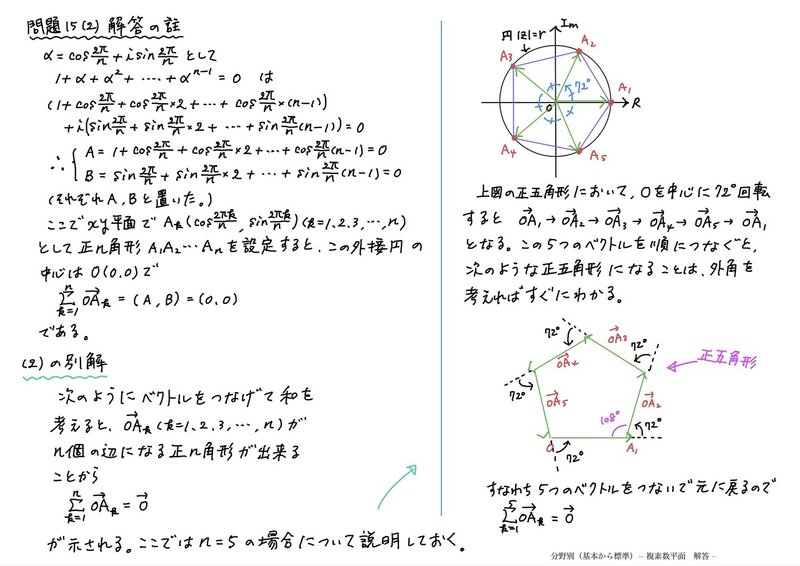 問題15(2) 解答の註
α=cos 2π/n + i sin 2π/n として
1+α+α²+ ‥‥ +αⁿ⁻¹ = 0 は
(1+cos 2π/n + cos 2π/n×2 + ‥ + cos 2π/n×(n-1))
+i(sin 2π/n + sin 2π/n×2 + ‥ + sin 2π/n(n-1)) = 0
∴ { A = 1+cos 2π/n + cos 2π/n×2 + ‥ + cos 2π/n(n-1) = 0
B = sin 2π/n + sin 2π/n×2 + ‥ + sin 2π/n(n-1) = 0
(それぞれA,Bと置いた。)
ここでxy平面で Aₖ(cos 2πk/n, sin 2πk/n) (k=1、2、3、‥‥,n)
として正n角形 A₁A₂‥Aₙを設定すると、この外接円の
中心は O(0,0)で
Σ[k=1→n] OAₖ→ = (A,B) = (0,0)
である。
(2)の別解
次のようにベクトルをつなげて和を
考えると、OAₖ→ (k=1、2、3、‥‥、n)が
n個の辺になる正n角形が出来る
ことから
Σ[k=1→n] OAₖ→ = 0→
が示される。ここではn=5の場合について説明しておく。
円|z|=r
Im
A₂
A₃
72°
A₁
O
R
A₄
A₅
上図の正五角形において,Oを中心に72°回転
すると OA₁→ → OA₂→ → OA₃→ → OA₄→ → OA₅→ → OA₁→
となる。この5つのベクトルを順につなぐと,
次のような正五角形になることは、外角を
考えればすぐにわかる。
72°
OA₄→
OA₃→
72°
正五角形
72°
OA₅→
OA₂→
108°
72°
O
72°
A₁
すなわち5つのベクトルをつないで元に戻るので
Σ[k=1→5] OAₖ→ = 0→
分野別（基本から標準）– 複素数平面 解答 –